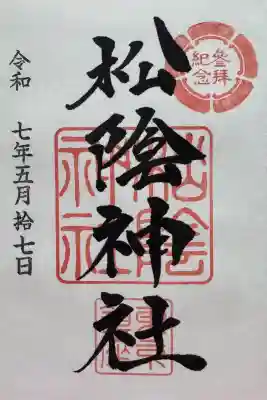 参拜
紀念
松陰神社
松陰
神社
令和 七年五月拾七日